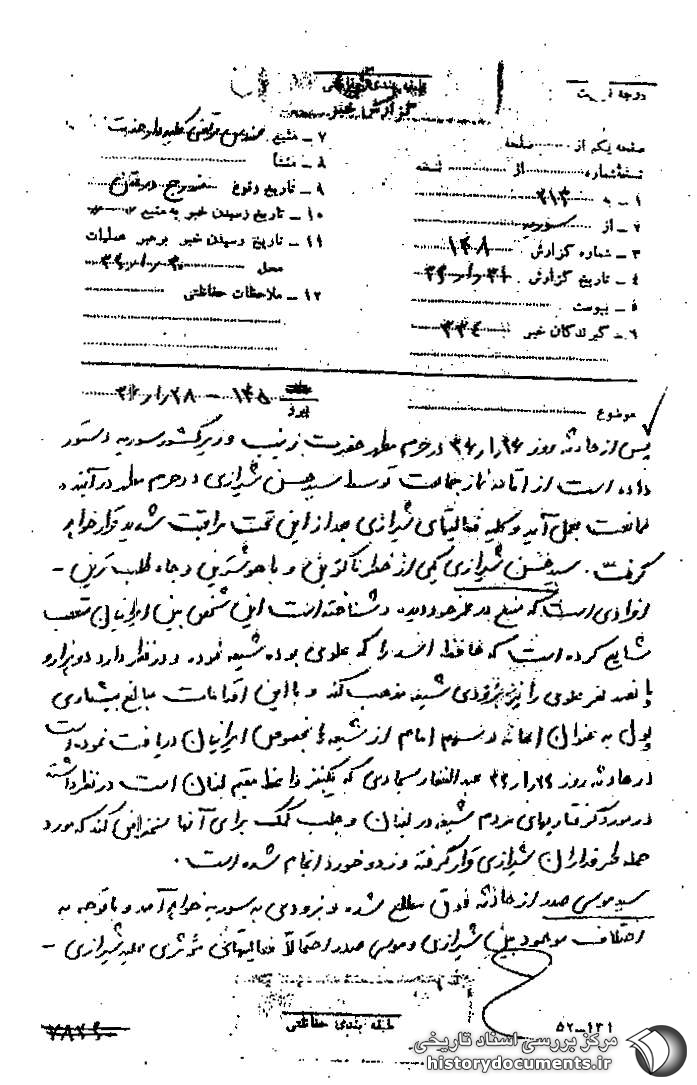 طبقه بندی حفاظتی
درجه فوریت
گزارش خبر
صفحه یکم از صفحه
نسخه شماره از نسخه
۱ - به ۲۱۳
۲ - از سوریه
۳ - شماره گزارش ۱۴۸
۴ - تاریخ گزارش
۵ - پیوست
۶ - گیرندگان خبر ۳۳۴
۷ - منبع
۸ - منشأ
۹ - تاریخ وقوع
۱۰ - تاریخ رسیدن خبر به منبع
۱۱ - تاریخ رسیدن خبر برهبر عملیات
محل
۱۲ - ملاحظات حفاظتی
موضوع
پس از حادثه روز در حرم مطهر حضرت زینب وزیر کشور سوریه دستور
داده است از اقامه نماز جماعت توسط سید حسن شیرازی در حرم مطهر در آینده
ممانعت بعمل آید و کلیه فعالیتهای شیرازی بعد از این تحت مراقبت شدید قرار خواهد
گرفت. سید حسن شیرازی یکی از خطرناکترین و باهوشترین و جاه طلب ترین -
افرادی است که منبع در عمر خود دیده و شناخته است این شخص بین ایرانیان متعصب
شایع کرده است که حافظ اسد را که علوی بوده شیعه نموده و در نظر دارد دو هزار و
پانصد نفر علوی را نیز بزودی شیعه مذهب کند و با این اقدامات مبالغ بیشماری
پول به عنوان اعانه و سهم امام از شیعه ها بخصوص ایرانیان دریافت نموده است
در حادثه روز عبدالغفار که یکنفر واعظ مقیم لبنان است در نظر داشته
در مورد گرفتاریهای مردم شیعه در لبنان و جلب کمک برای آنها سخنرانی کند که مورد
حمله طرفداران شیرازی قرار گرفته و زد و خورد انجام شده است.
سید موسی صدر از حادثه فوق مطلع شده و بزودی به سوریه خواهد آمد و با توجه به
اختلاف موجود بین شیرازی و موسی صدر احتمالا فعالیتهای مؤثری علیه شیرازی -
طبقه بندی حفاظتی
۵۲-۱۳۱
مرکز بررسی اسناد تاریخی
historydocuments.ir